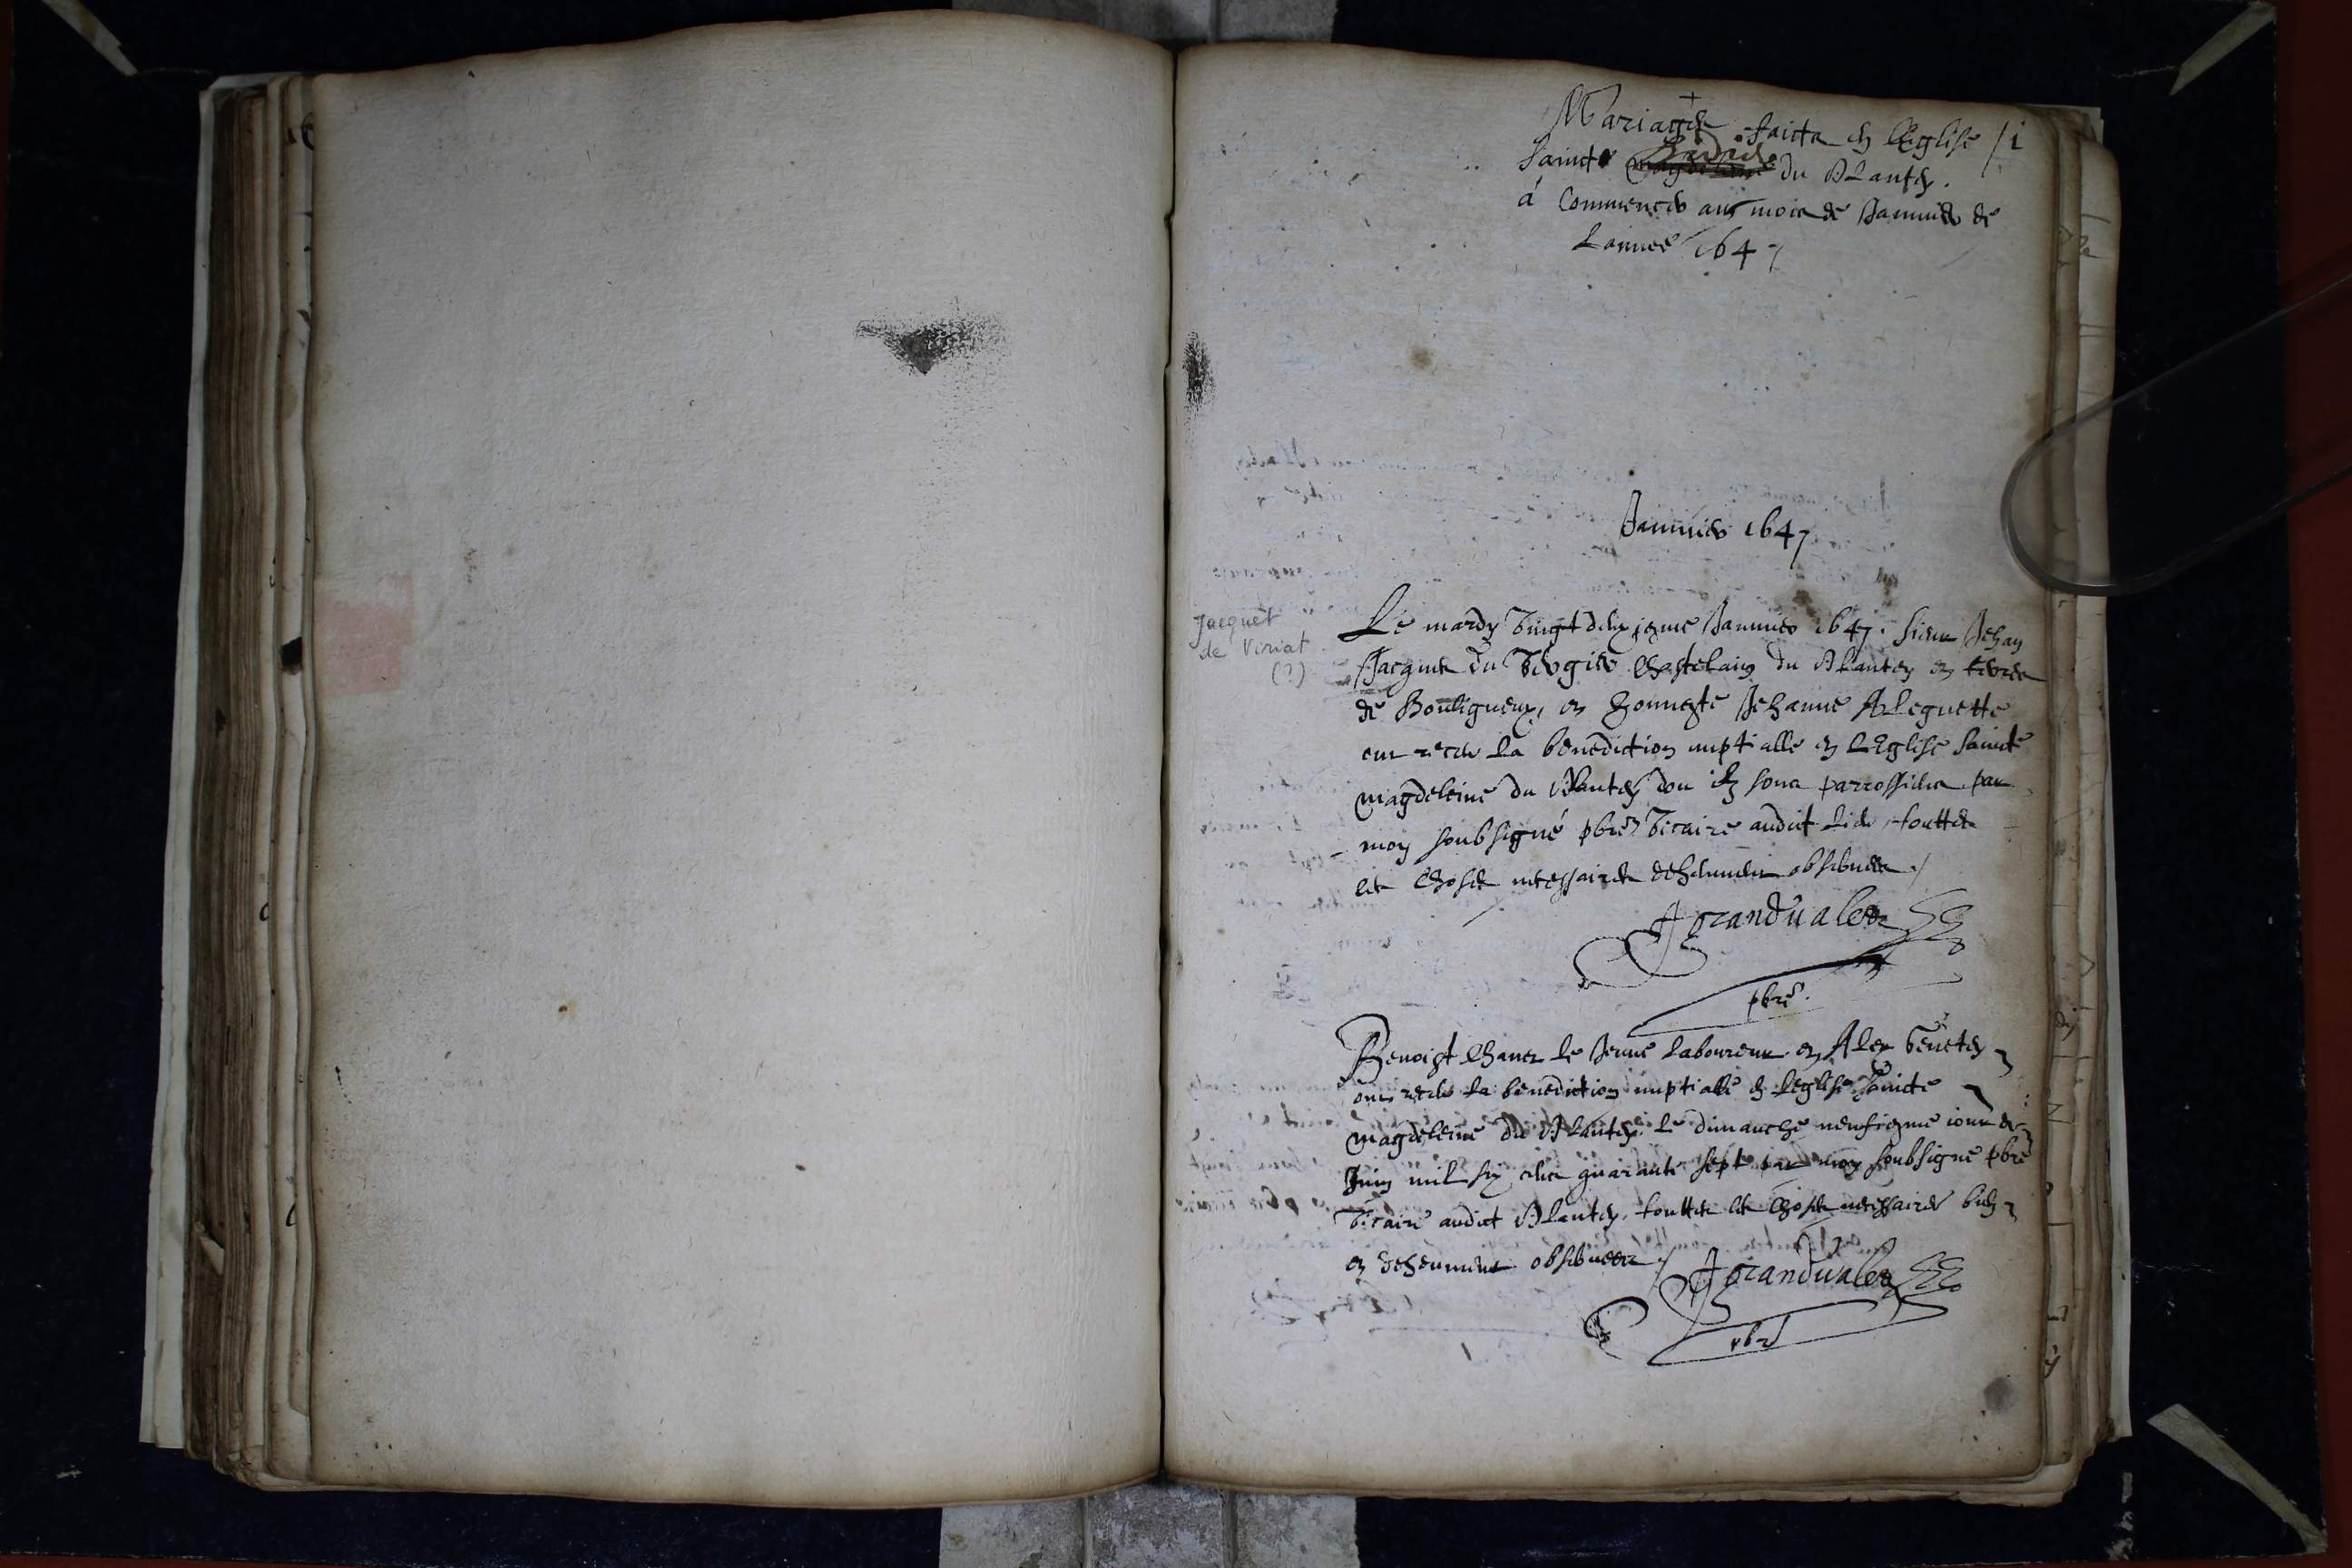 Mariages faicts en l'Eglise
Saincte du Plantey.
à Commencer au mois de Janvier de
L'annee 1647
/ 1
Janvier 1647
Jacquet
de Viriat
(?)
Le mardy vingt deuxiesme Janvier 1647. sieur Jehan
Jacques du Vergier Chastelain du Plantey et terres
de Bouligneux, et honneste Jehanne
ont receu la benediction nuptialle en L'Eglise Saincte
magdeleine du Plantey dou ils sont parrossiens par
moy soubsigné pbre vicaire audict lieu, touttes
les choses necessaires deheument observees ./
Grandvales
pbre.
Benoist le Jeune laboureur et
ont receu la benediction nuptialle en l'eglise saincte
magdeleine du Plantey le dimanche neufiesme iour de
Juin mil six cens quarante sept par moy soubsigne pbre
Vicaire audict Plantey, touttes les choses necessaires bien
et deheument observees ./ Grandvales
pbre